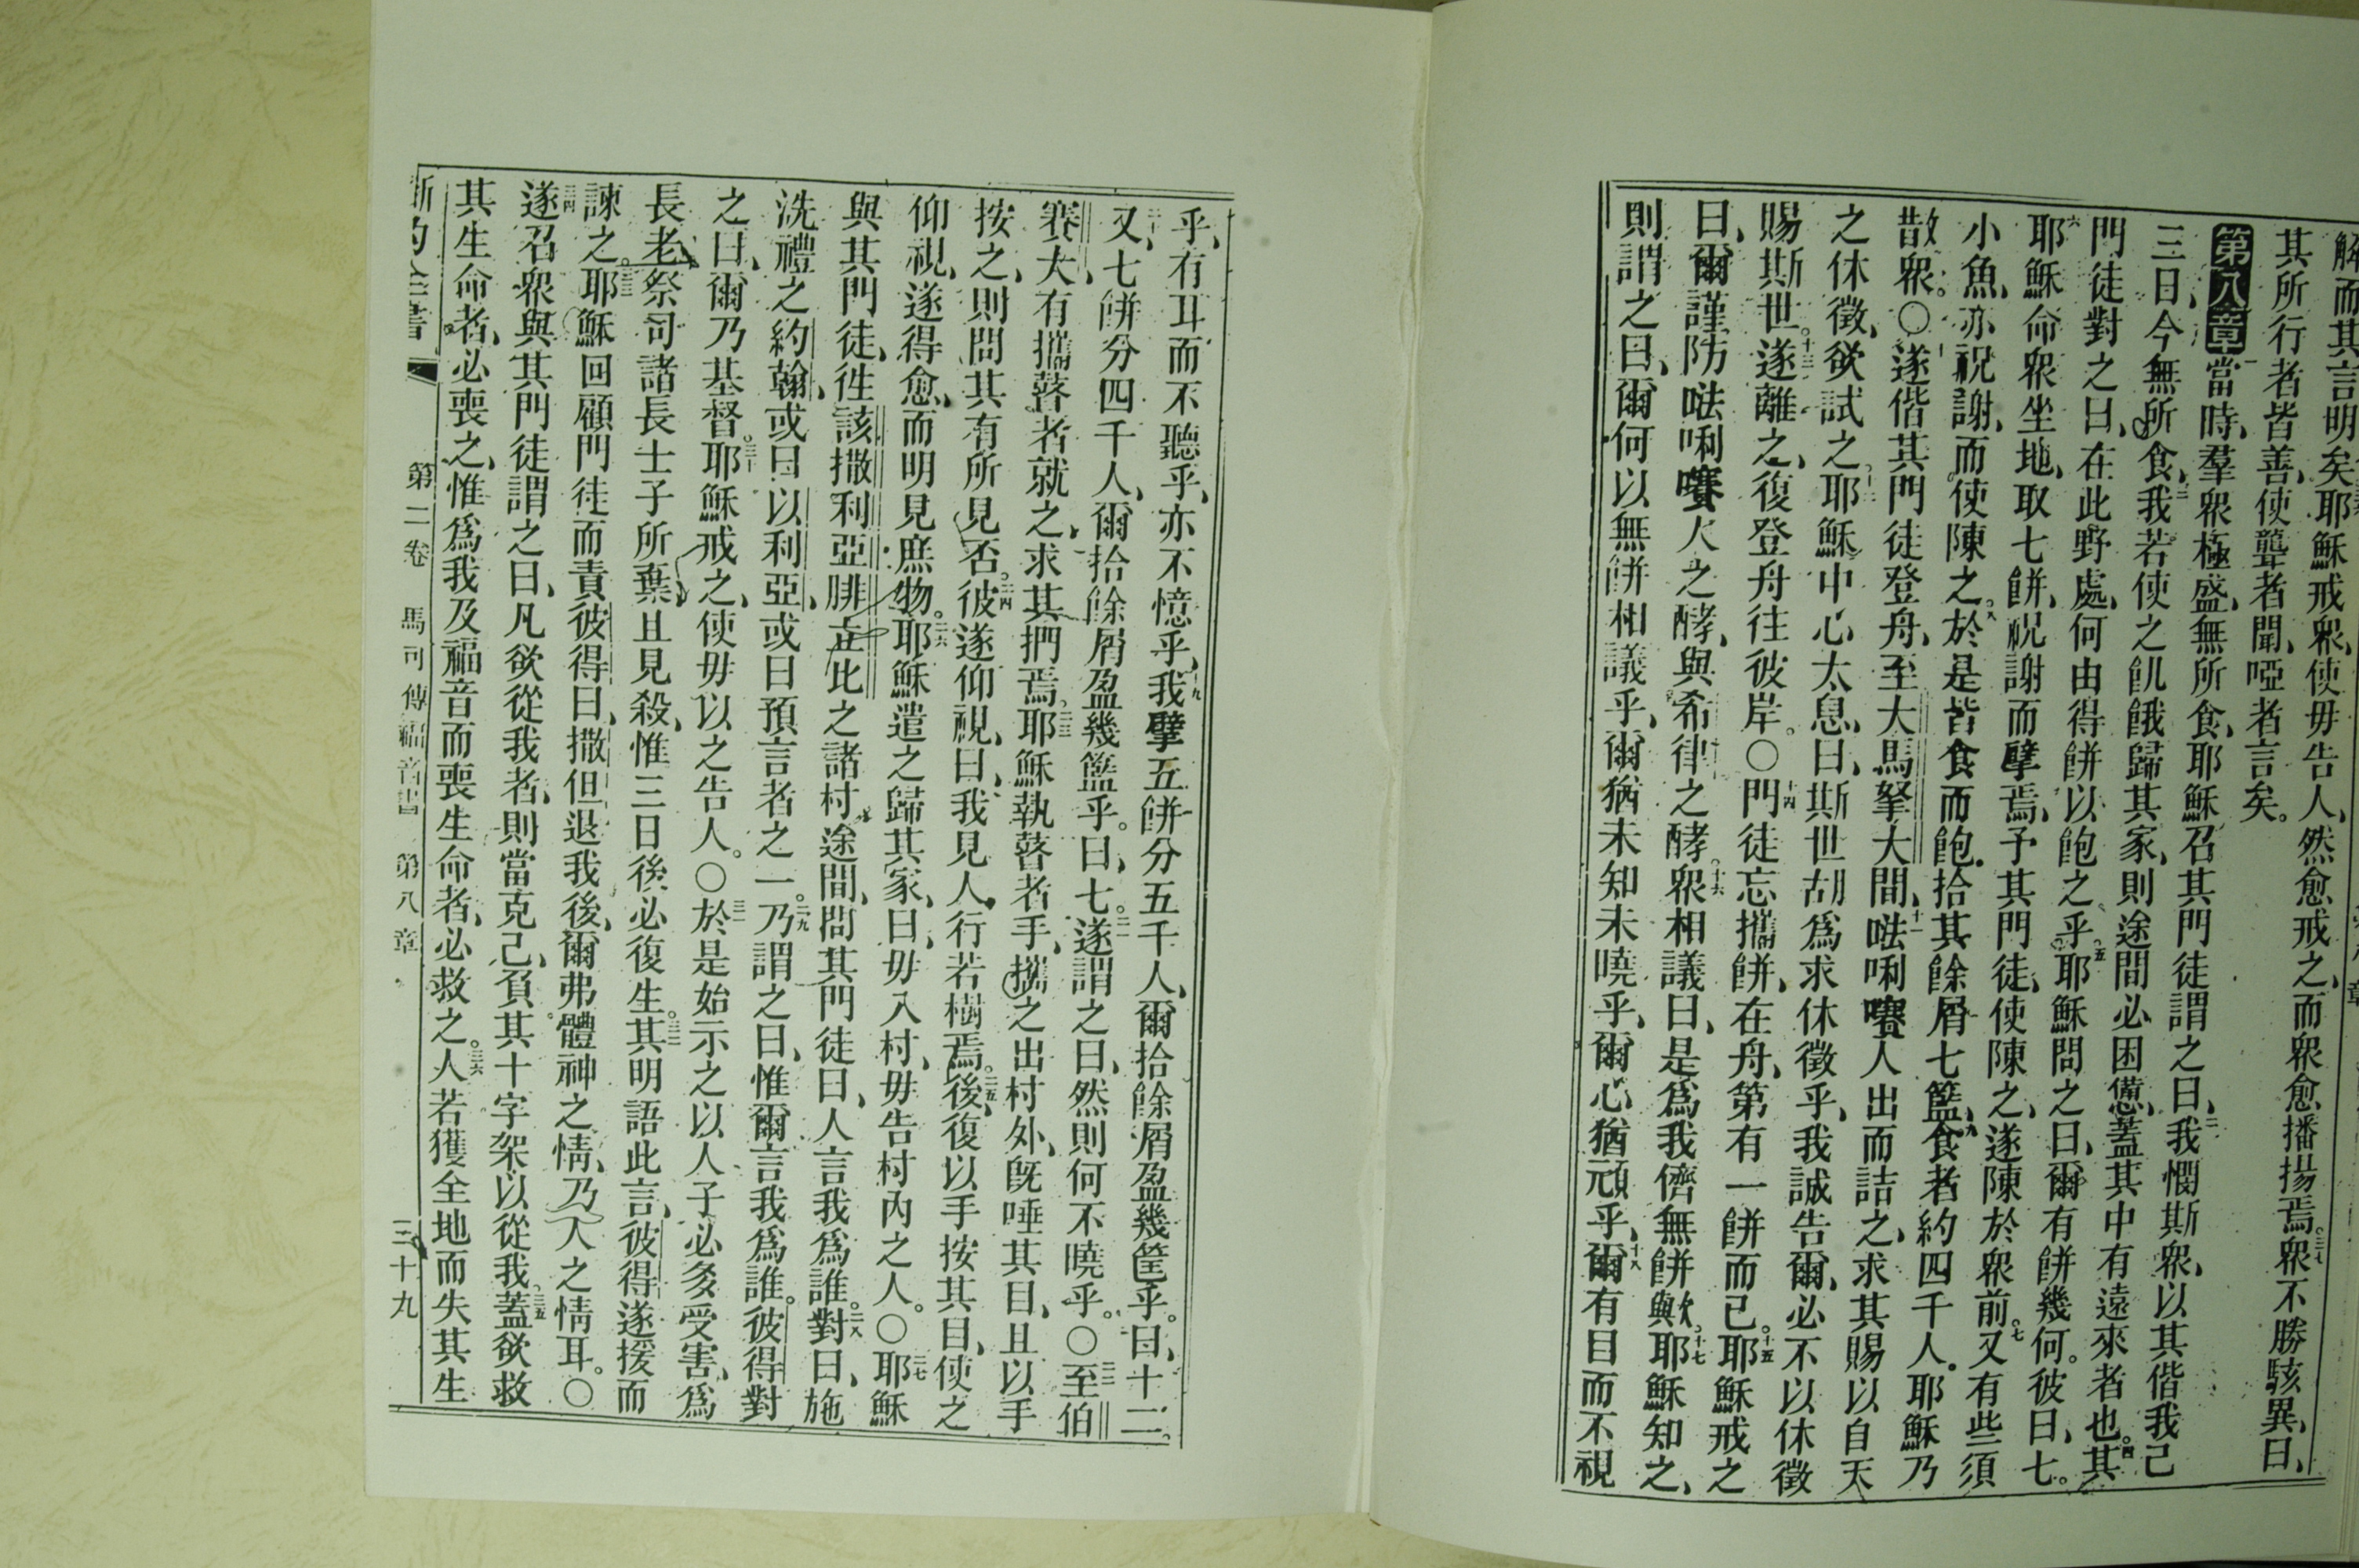 解而其言明矣耶穌戒衆、使毋告人、然愈戒之、而衆愈播揚焉。三七衆不勝駭異、曰、
其所行者皆善、使聾者聞、啞者言矣。
第八章一當時、羣衆極盛、無所食、耶穌召其門徒謂之曰、二我憫斯衆、以其偕我已
三日、今無所食、三我若使之飢餓歸其家、則途間必困憊、蓋其中有遠來者也。四其
門徒對之曰、在此野處、何由得餅以飽之乎。五耶穌問之曰、爾有餅幾何。彼曰、七。
六耶穌命衆坐地、取七餅、祝謝而擘焉、予其門徒、使陳之、遂陳於衆前。七又有些須
小魚、亦祝謝、而使陳之。八於是皆食而飽。拾其餘屑七籃、九食者約四千人。耶穌乃
散衆。〇十遂偕其門徒登舟、至大馬拏大間、十一㗓唎㘔人出而詰之、求其賜以自天
之休徵、欲試之。十二耶穌中心太息、曰、斯世胡爲求休徵乎、我誠告爾、必不以休徵
賜斯世。十三遂離之、復登舟往彼岸。〇十四門徒忘攜餅、在舟、第有一餅而已。十五耶穌戒之
曰、爾謹防㗓唎㘔人之酵、與希律之酵。十六衆相議曰、是爲我儕無餅與歟。十七耶穌知之、
則謂之曰、爾何以無餅相議乎、爾猶未知未曉乎、爾心猶頑乎、十八爾有目而不視
乎、有耳而不聽乎、亦不憶乎、十九我擘五餅分五千人、爾拾餘屑盈幾筐乎。曰、十二。
二十又、七餅分四千人、爾拾餘屑盈幾籃乎。曰、七。二一遂謂之曰、然則何不曉乎。〇二二至伯
賽大、有攜瞽者就之、求其捫焉。二三耶穌執瞽者手、攜之出村外、旣唾其目、且以手
按之、則問其有所見否。二四彼遂仰視、曰、我見人、行若樹焉。二五後、復以手按其目、使之
仰視、遂得愈、而明見庶物。二六耶穌遣之歸其家、曰、毋入村、毋告村內之人。〇二七耶穌
與其門徒、徃該撒利亞腓立比之諸村、途間、問其門徒曰、人言我爲誰。二八對曰、施
洗禮之約翰、或曰以利亞、或曰預言者之一。二九乃謂之曰、惟爾言我爲誰。彼得對
之曰、爾乃基督。三十耶穌戒之、使毋以之告人。〇三一於是始示之以人子必多受害、爲
長老祭司諸長士子所棄、且見殺、惟三日後必復生。三二其明語此言、彼得遂援而
諫之。三三耶穌回顧門徒而責彼得曰、撒但退我後、爾弗體神之情、乃人之情耳。〇
三四遂召衆與其門徒謂之曰、凡欲從我者、則當克己、負其十字架以從我。三五蓋欲救
其生命者、必喪之、惟爲我及福音而喪生命者、必救之。三六人若獲全地而失其生
新約全書 第二卷 馬可傳福音書 第八章 三十九